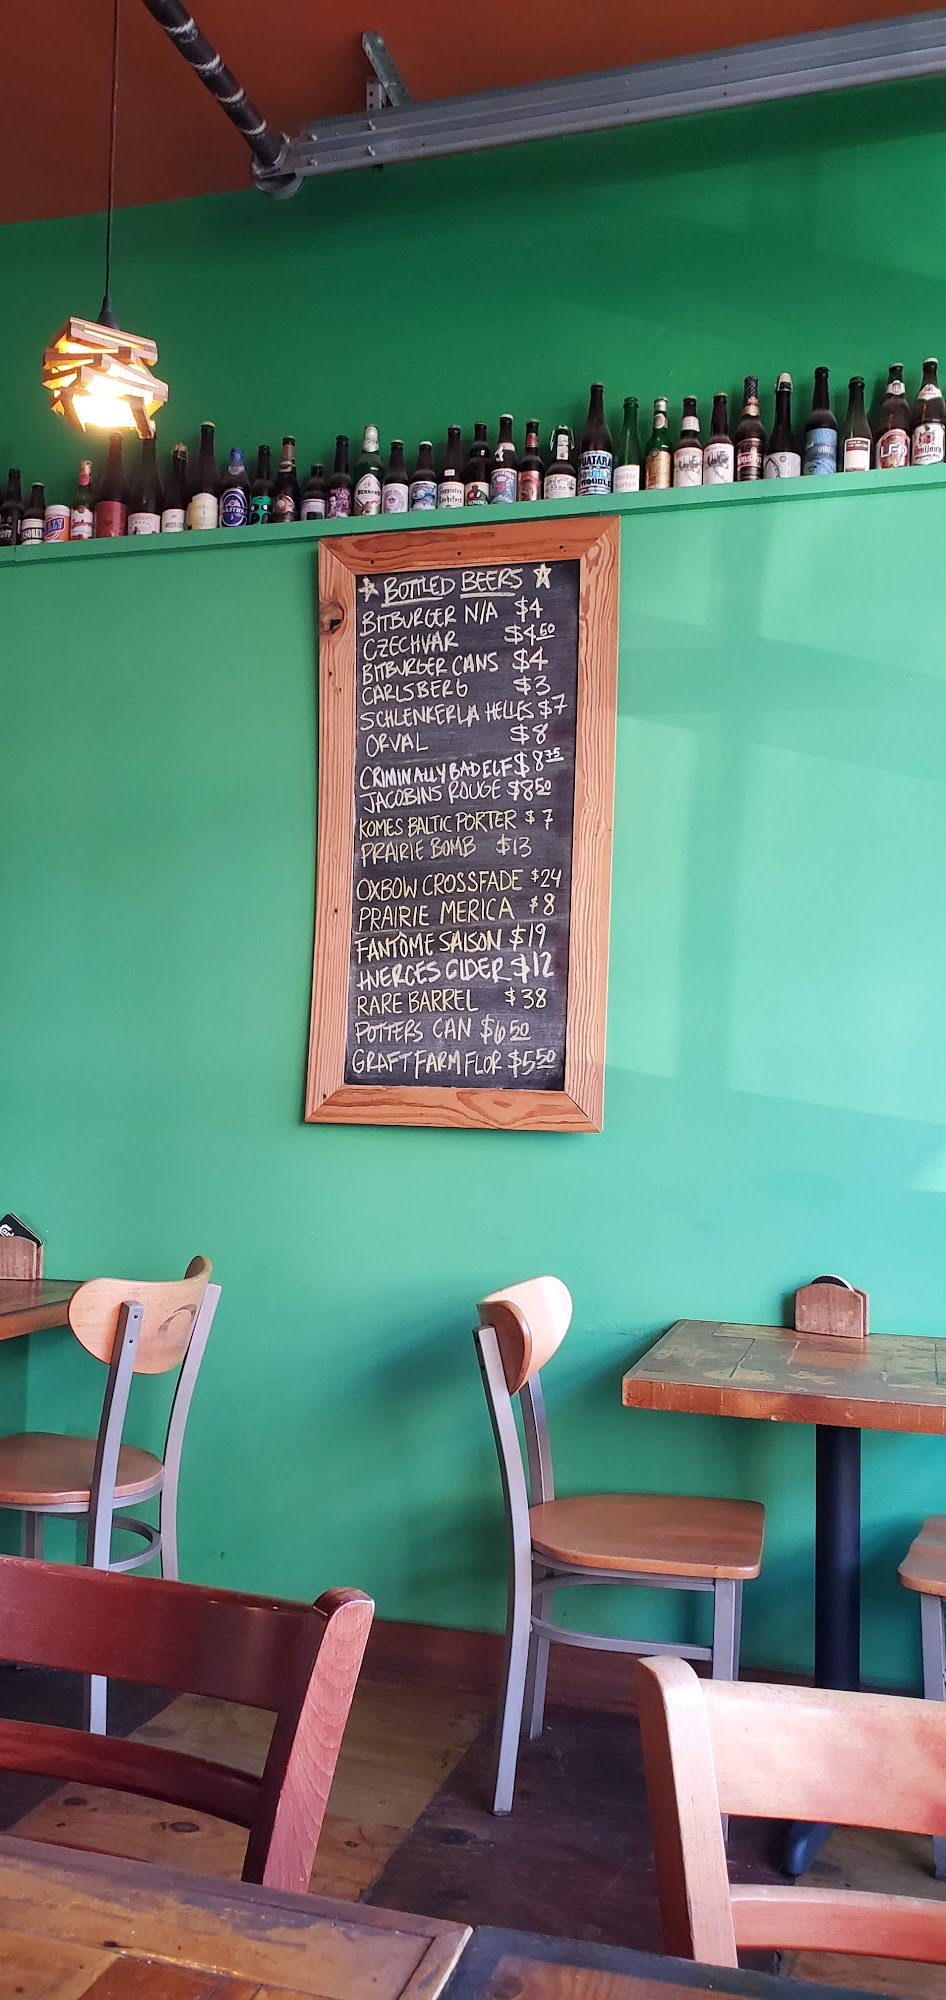 ☆ BOTTLED BEERS ☆
BITBURGER N/A $4
CZECHVAR $4.50
BITBURGER CANS $4
CARLSBERG $3
SCHLENKERLA HELLES $7
ORVAL $8
CRIMINALLY BAD ELF $8.75
JACOBINS ROUGE $8.50
KOMES BALTIC PORTER $7
PRAIRIE BOMB $13
OXBOW CROSSFADE $24
PRAIRIE MERICA $8
FANTÔME SAISON $19
HVERGES CIDER $12
RARE BARREL $38
POTTERS CAN $6.50
GRAFT FARM FLOR $5.50